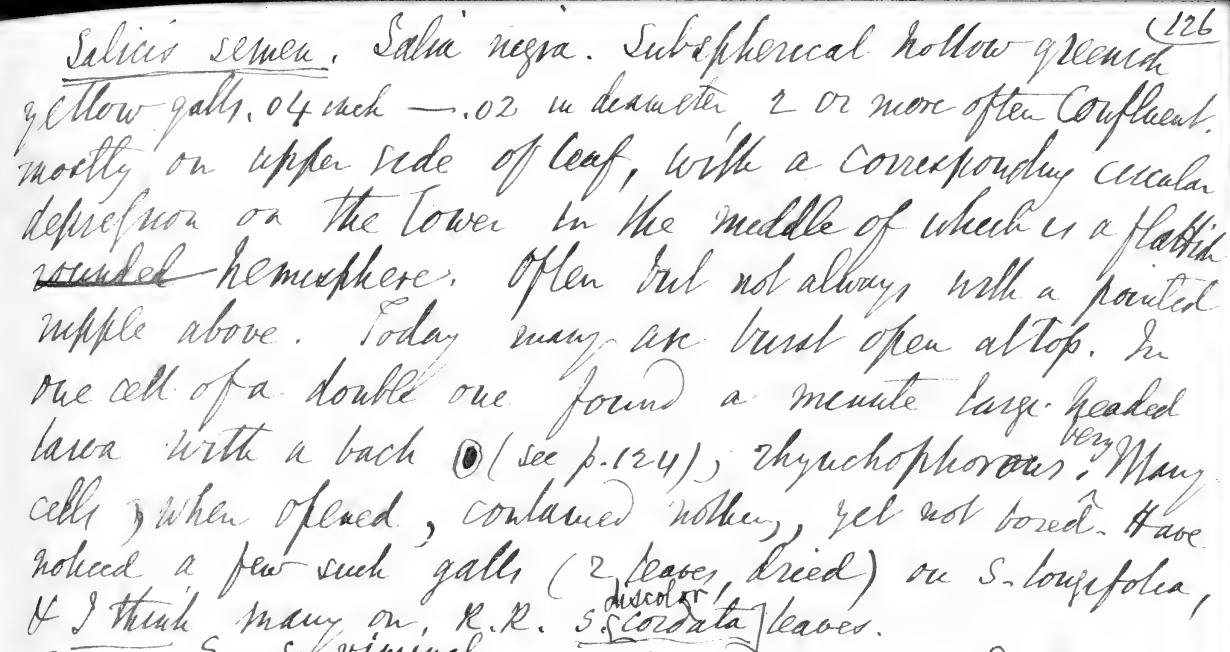 126
Salicis semen. Salix nigra. Subspherical hollow greenish
yellow galls, .04 inch — .02 in diameter, 2 or more often confluent.
mostly on upper side of leaf, with a corresponding circular
depression on the lower in the middle of which is a flattish
rounded hemisphere. Often but not always with a pointed
nipple above. Today many are burst open at top. In
one cell of a double one found a minute large-headed
larva with a back (see p.124), rhynchophorous? very Many
cells, when opened, contained nothing, yet not bored. Have
noticed a few such galls (2 leaves, dried) on S. longifolia,
discolor
& I think many on R.R. S. [cordata] leaves.